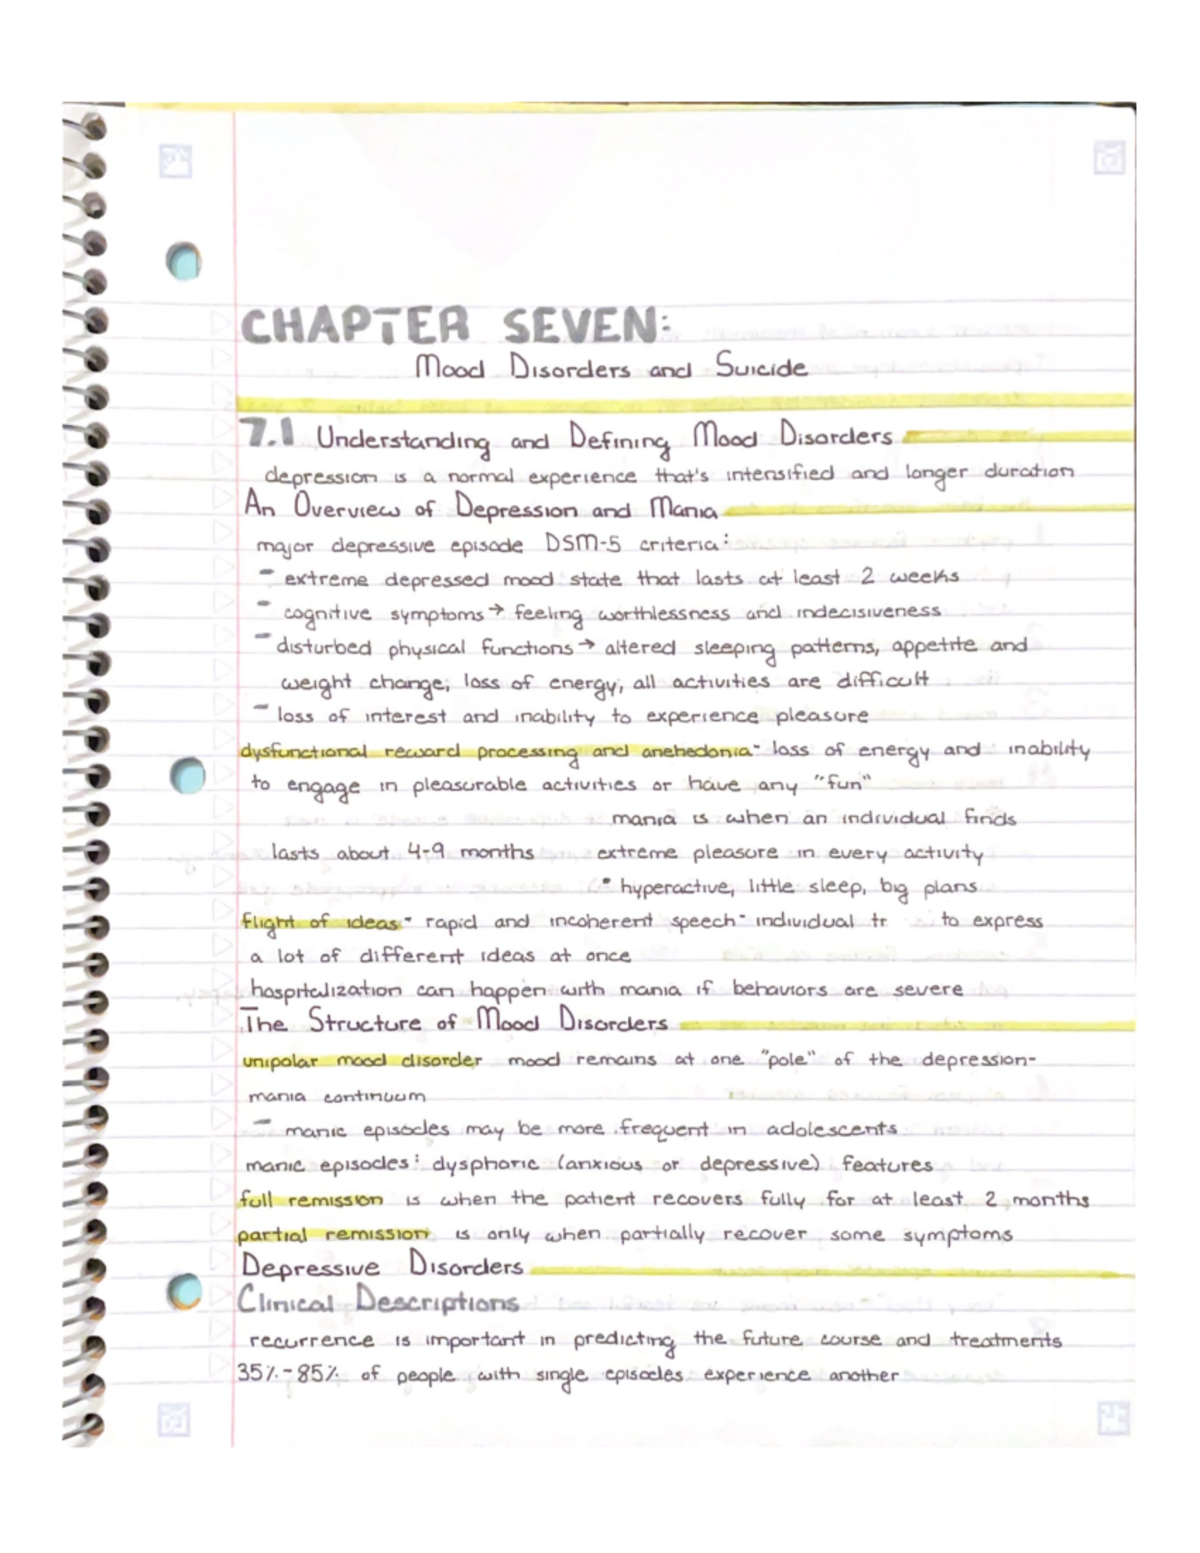 CHAPTER SEVEN:
Mood Disorders and Suicide
7.1 Understanding and Defining Mood Disorders
depression is a normal experience that's intensified and longer duration
An Overview of Depression and Mania
major depressive episode DSM-5 criteria:
- extreme depressed mood state that lasts at least 2 weeks
- cognitive symptoms → feeling worthlessness and indecisiveness
- disturbed physical functions → altered sleeping patterns, appetite and
weight change, loss of energy, all activities are difficult
- loss of interest and inability to experience pleasure
dysfunctional reward processing and anehedonia- loss of energy and inability
to engage in pleasurable activities or have any "fun"
mania is when an individual finds
lasts about 4-9 months extreme pleasure in every activity
• hyperactive, little sleep, big plans
flight of ideas- rapid and incoherent speech- individual tr is to express
a lot of different ideas at once
hospitalization can happen with mania if behaviors are severe
The Structure of Mood Disorders
unipolar mood disorder mood remains at one "pole" of the depression-
mania continuum
- manic episodes may be more frequent in adolescents
manic episodes: dysphoric (anxious or depressive) features
full remission is when the patient recovers fully for at least 2 months
partial remission is only when partially recover some symptoms
Depressive Disorders
Clinical Descriptions
recurrence is important in predicting the future course and treatments
35%-85% of people with single episodes experience another